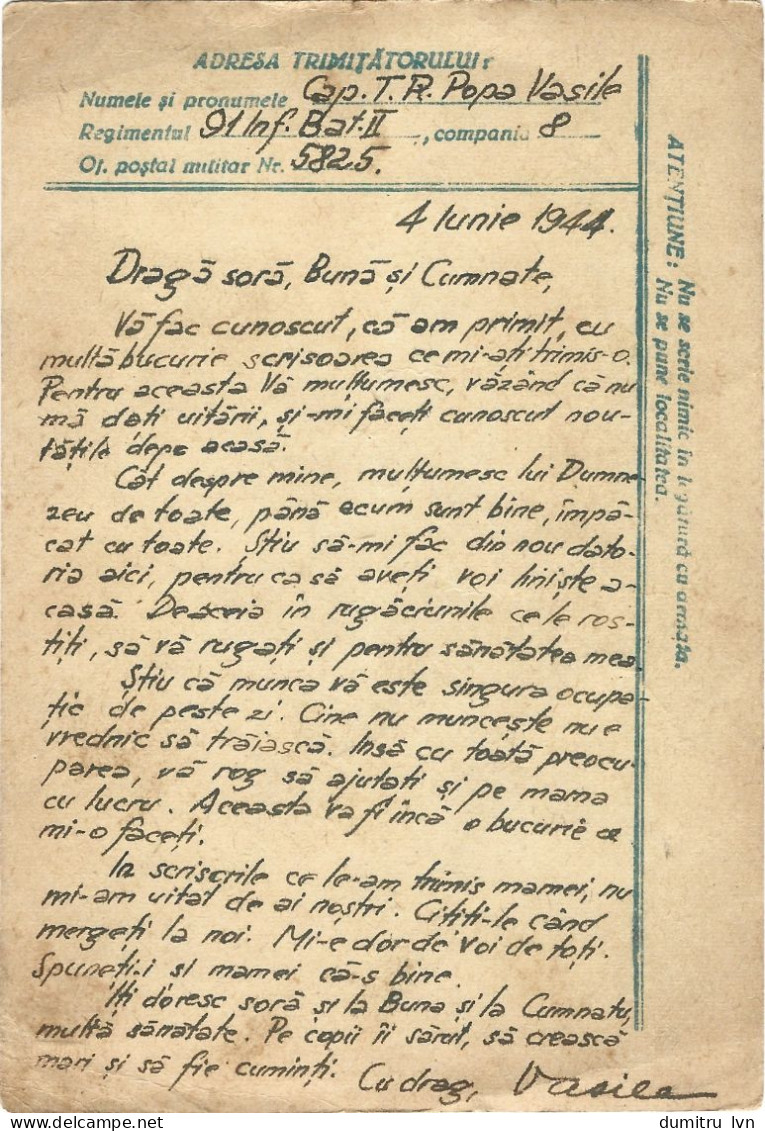 ADRESA TRIMIȚĂTORULUI:
Numele și pronumele Cap. T. R. Popa Vasile
Regimentul 91 Inf. Bat. II, compania 8
Of. poștal militar Nr. 5825.
4 Iunie 1944.
Dragă soră, Bună și Cumnate,
Vă fac cunoscut, că am primit, cu
multă bucurie scrisoarea ce mi-ați trimis-o.
Pentru aceasta Vă mulțumesc, văzând că nu
mă dați uitării, și-mi faceți cunoscut nou-
tățile depe acasă.
Cât despre mine, mulțumesc lui Dumne-
zeu de toate, până acum sunt bine, împă-
cat cu toate. Știu să-mi fac din nou dato-
ria aici, pentru ca să aveți voi liniște a-
casă. Deaceia în rugăciunile ce le ros-
tiți, să vă rugați și pentru sănătatea mea.
Știu că munca vă este singura ocupa-
ție de peste zi. Cine nu muncește nu e
vrednic să trăiască. Însă cu toată preocu-
parea, vă rog să ajutați și pe mama
cu lucru. Aceasta va fi încă o bucurie ce
mi-o faceți.
In scrisorile ce le-am trimis mamei, nu
mi-am uitat de ai noștri. Citiți-le când
mergeți la noi. Mi-e dor de voi de toți.
Spuneți-i si mamei că-s bine.
Îți doresc soră și la Buna și la Cumnatu,
multă sănătate. Pe copii îi sărut, să crească
mari și să fie cuminți. Cu drag, Vasile
ATENȚIUNE: Nu se scrie nimic în legătură cu armata.
Nu se pune localitatea.
dumitru lvn